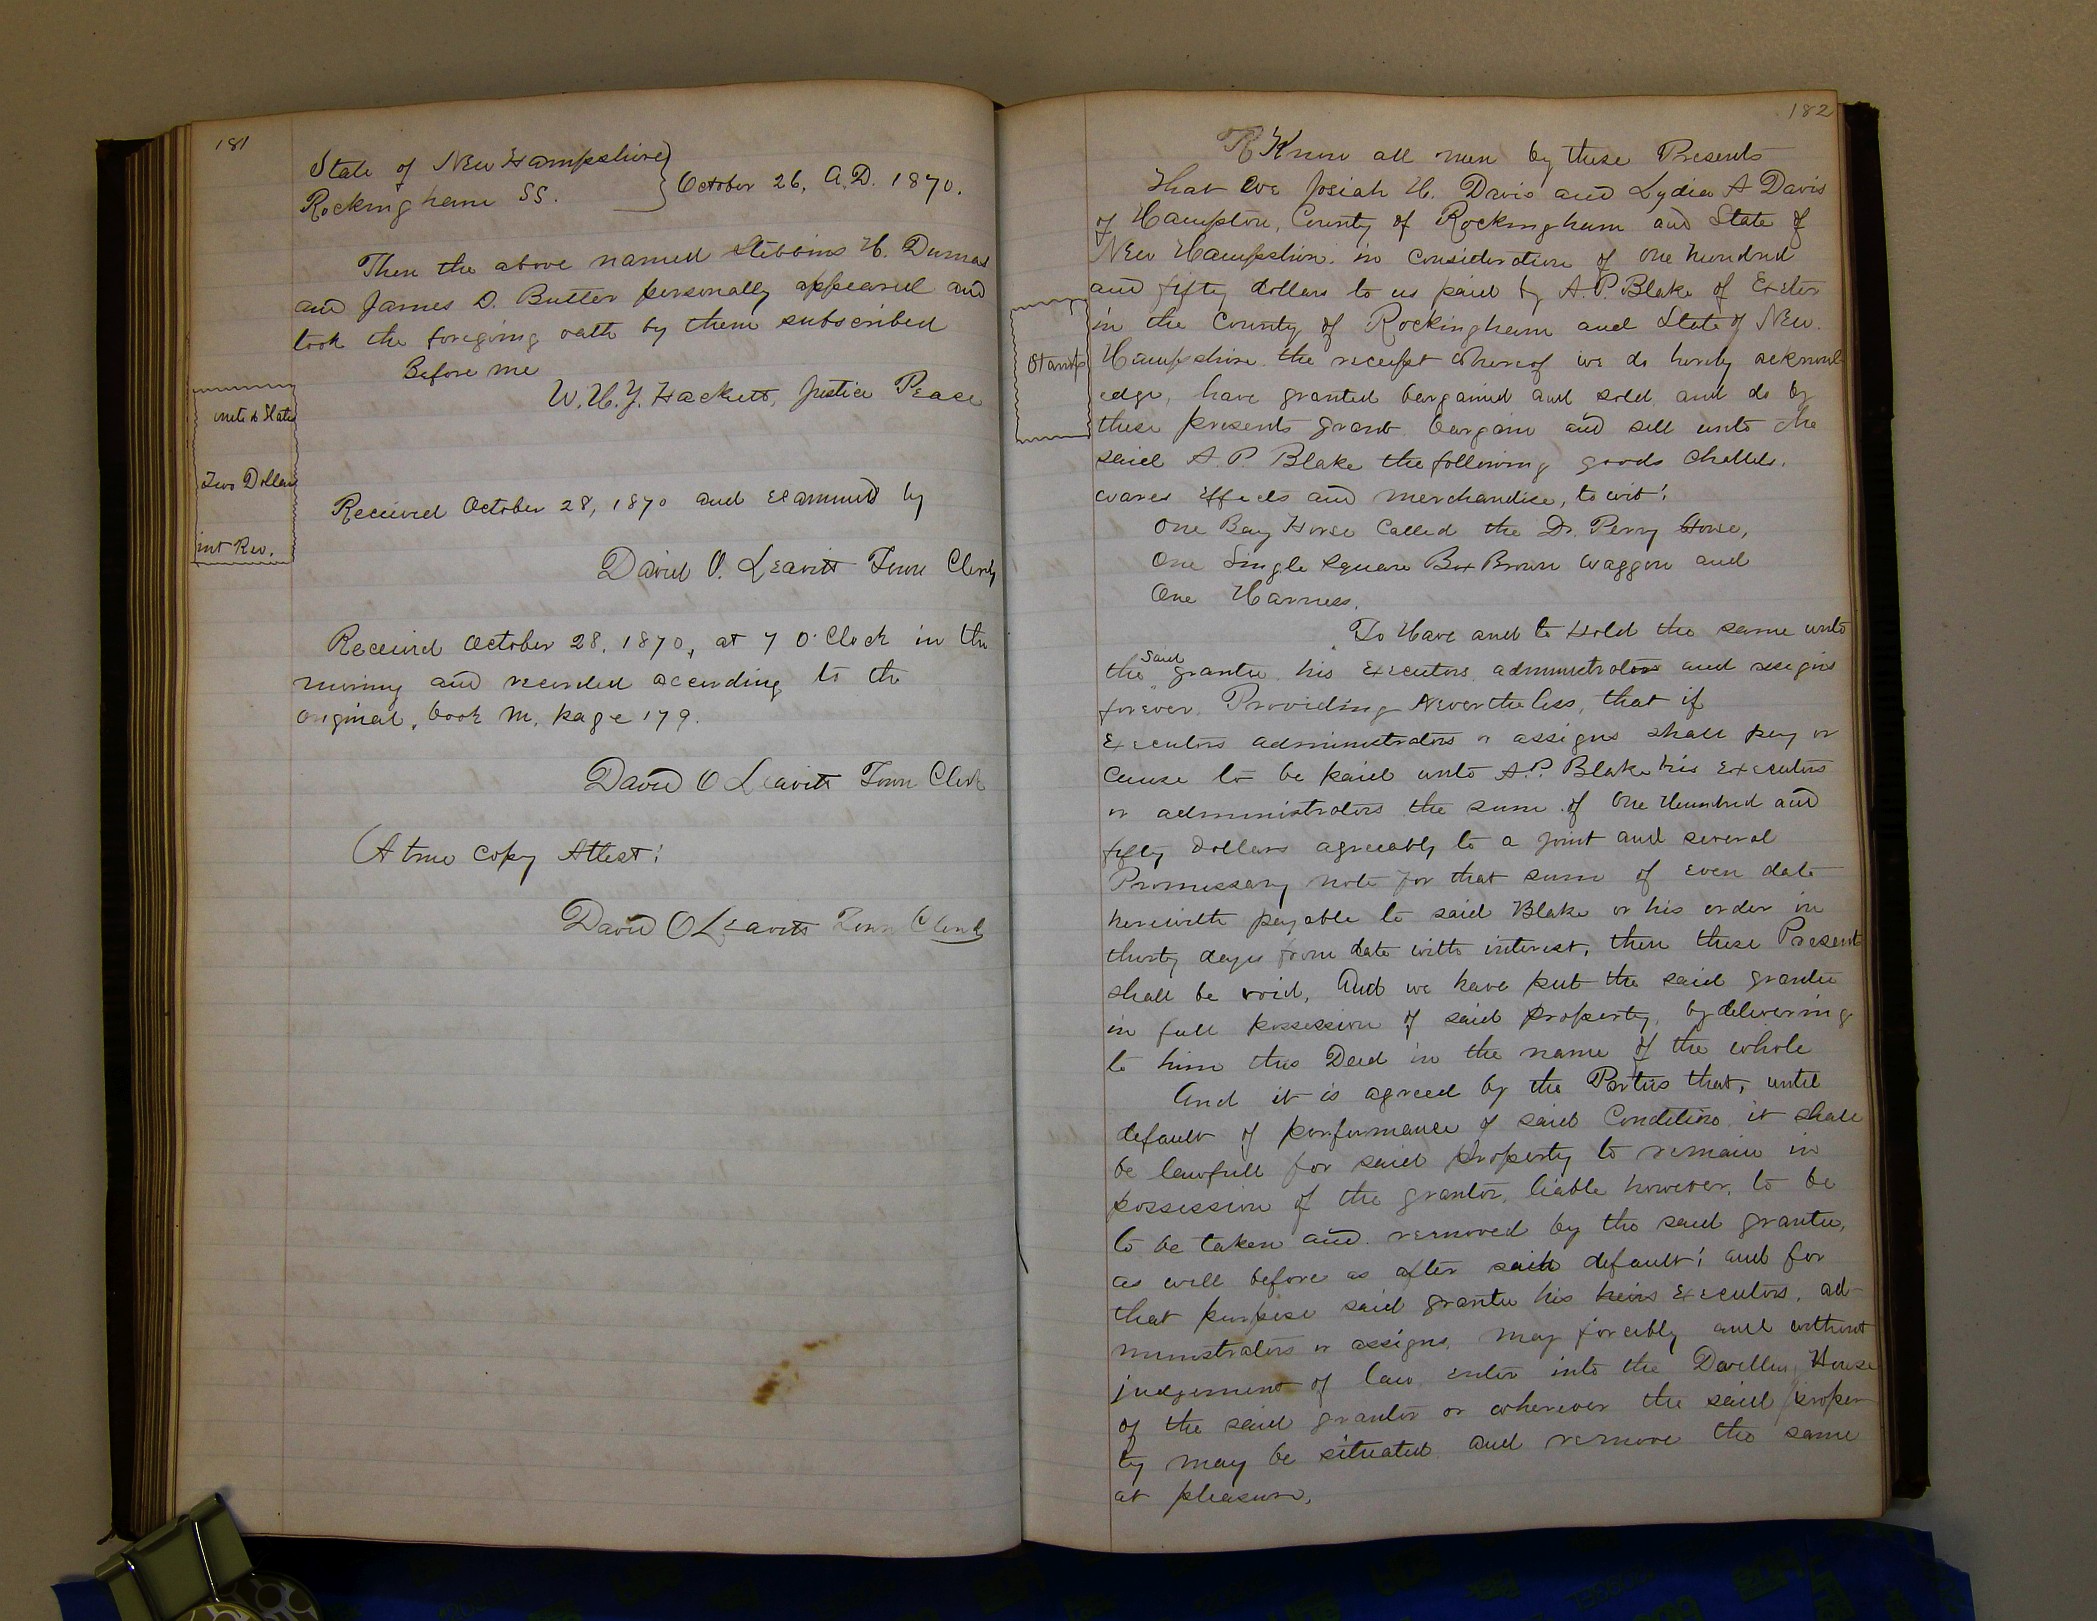 181
State of New Hampshire
Rockingham SS. } October 26, A.D. 1870.
Then the above named Stebbins H. Dumas
and James D. Butler personally appeared and
took the foregoing oath by them subscribed
Before me
W. H. Y. Hackett, Justice Peace
Two Dollar
int Rev.
Received October 28, 1870 and examined by
David O. Leavitt Town Clerk
Received October 28, 1870, at 7 O'Clock in the
morning and recorded according to the
original, book M, page 179.
David O Leavitt Town Clerk
A true copy Attest:
David O Leavitt Town Clerk
182
Know all men by these Presents
that we Josiah H. Davis and Lydia A Davis
of Hampton, County of Rockingham and State of
New Hampshire. in consideration of One hundred
and fifty dollars to us paid by A. P. Blake of Exeter
in the County of Rockingham and State of New
Stamp
Hampshire the receipt whereof we do hereby acknowl
edge, have granted bargained and sold, and do by
these presents grant bargain and sell unto the
said A. P. Blake the following goods chattels,
wares effects and merchandise, to wit:
One Bay Horse Called the Dr. Perry Horse,
One Single Square Box Brown Waggon and
One Harness.
To Have and to Hold the same unto
the said grantee his Executors administrators and assigns
forever. Providing Nevertheless, that if
Executors administrators or assigns shall pay or
cause to be paid unto A. P. Blake his Executors
or administrators the sum of One Hundred and
fifty Dollars agreeably to a joint and several
Promissary note for that sum of even date
herewith payable to said Blake or his order in
thirty days from date with interest, then these Presents
shall be void, And we have put the said grantee
in full possession of said property, by delivering
to him this Deed in the name of the whole
And it is agreed by the Parties that, until
default of performance of said Condition it shall
be lawfull for said property to remain in
possession of the grantor, liable however, to be
to be taken and removed by the said grantee,
as well before as after said default; and for
that purpose said grantee his heirs Executors, ad-
ministrators or assigns, may forcibly and without
judgement of law enter into the Dwelling House
of the said grantor or wherever the said proper
ty may be situated and remove the same
at pleasure.